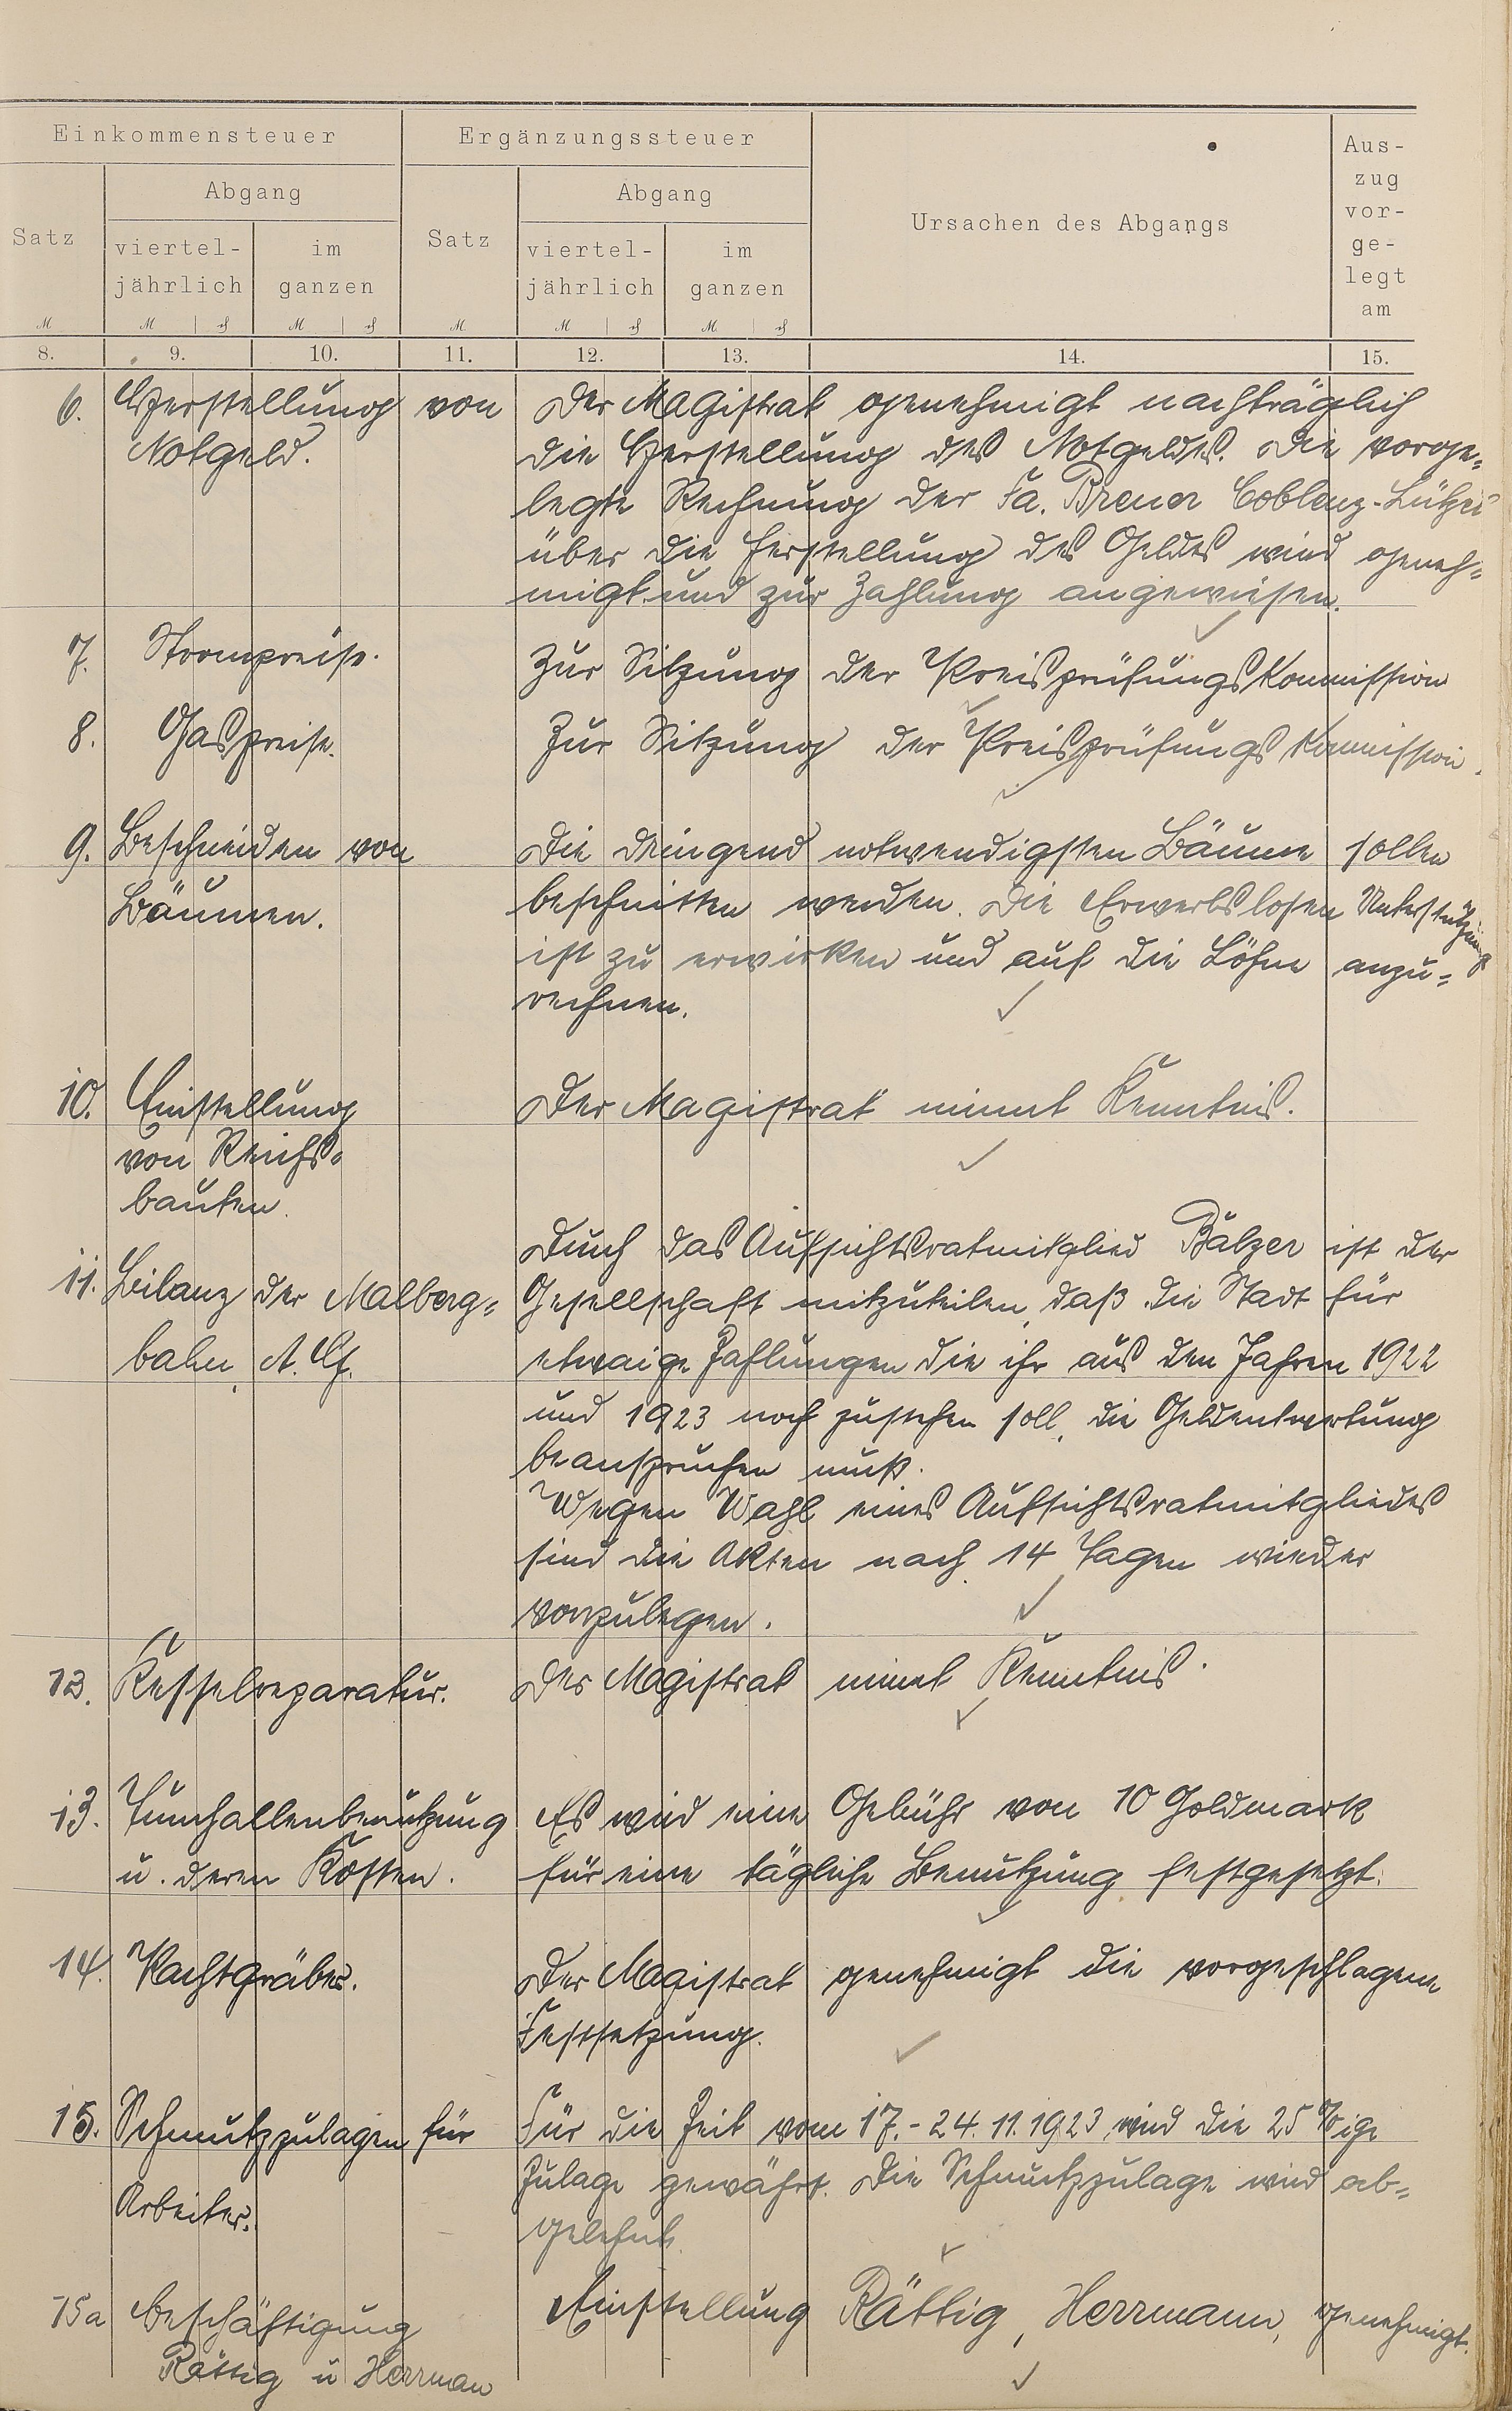 Einkommensteuer
Ergänzungssteuer
Ursachen des Abgangs
Aus-
zug
vor-
ge-
legt
am
Satz
Abgang
viertel-
jährlich
im
ganzen
Satz
Abgang
viertel-
jährlich
im
ganzen
M M ₰ M ₰ M M ₰ M ₰
8. 9. 10. 11. 12. 13. 14. 15.
6. Herstellung von
Notgeld.
Der Magistrat genehmigt nachträglich
die Herstellung des Notgeldes. Die vorge-
legte Rechnung der Fa. Breuer Coblenz-Lützel
über die Herstellung des Geldes wird geneh-
migt und zur Zahlung angewiesen.
7. Strompreise.
Zur Sitzung der Preisprüfungskommission
8. Gaspreise.
Zur Sitzung der Preisprüfungskommission.
9. Beschneiden von
Bäumen.
Die dringend notwendigsten Bäume sollen
beschnitten werden. Die Erwerbslosen Unterstützung
ist zu erwirken und auf die Löhne anzu-
rechnen.
10. Einstellung
von Reichs-
bauten.
Der Magistrat nimmt Kenntnis.
11. Bilanz der Malberg-
bahn, A. G.
Durch das Aufsichtsratmitglied Balzer ist der
Gesellschaft mitzuteilen, daß die Stadt für
etwaige Zahlungen die ihr aus den Jahren 1922
und 1923 noch zustehen soll, die Geldentwertung
beanspruchen muß.
Wegen Wahl eines Aufsichtsratmitgliedes
sind die Akten nach 14 Tagen wieder
vorzulegen.
12. Kesselreparatur.
Der Magistrat nimmt Kenntnis.
13. Turnhallenbenutzung
u. deren Kosten.
Es wird eine Gebühr von 10 Goldmark
für eine tägliche Benutzung festgesetzt.
14. Pachtgräber.
Der Magistrat genehmigt die vorgeschlagene
Festsetzung.
15. Schmutzzulagen für
Arbeiter.
Für die Zeit vom 17.-24.11.1923 wird die 25%ige
Zulage gewährt. Die Schmutzzulage wird ab-
gelehnt.
15a Beschäftigung
Rättig u Herrman
Einstellung Rättig, Herrmann, genehmigt.